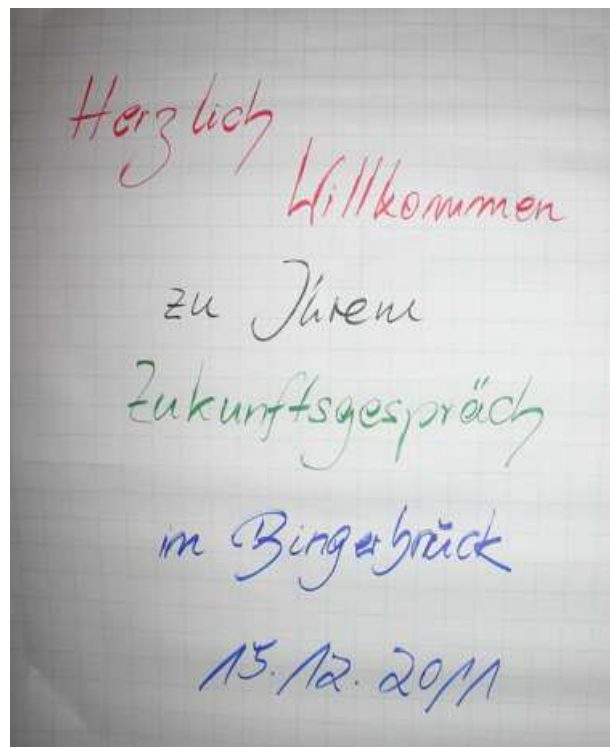 Herzlich
Willkommen
zu Ihrem
Zukunftsgespräch
in Bingerbrück
15.12.2011